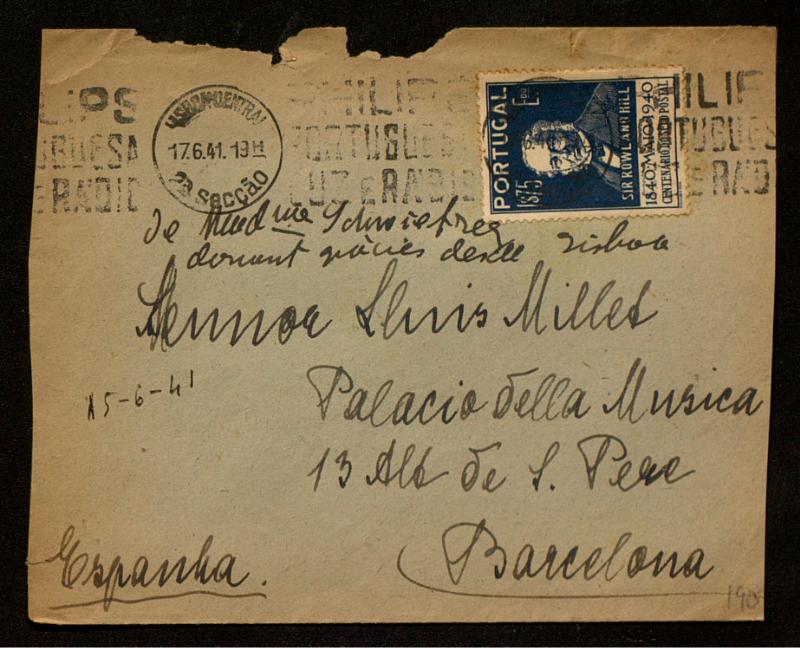 LIPS
GUESA
E RADIO
LISBOA CENTRAL
17.6.41. 19H
2ª SECÇÃO
PHILIPS
PORTUGUESA
LUZ E RADIO
PORTUGAL
1$75
SIR ROWLAND HILL
1840 MAIO 1940
CENTENÁRIO DO SELO POSTAL
PHILIP
RTUGUES
E RAD
de Mad me
donant gràcies desde Lisboa
Sennor Lluis Millet
Palacio della Musica
15-6-41
13 Alt de S. Pere
Espanha.
Barcelona
190